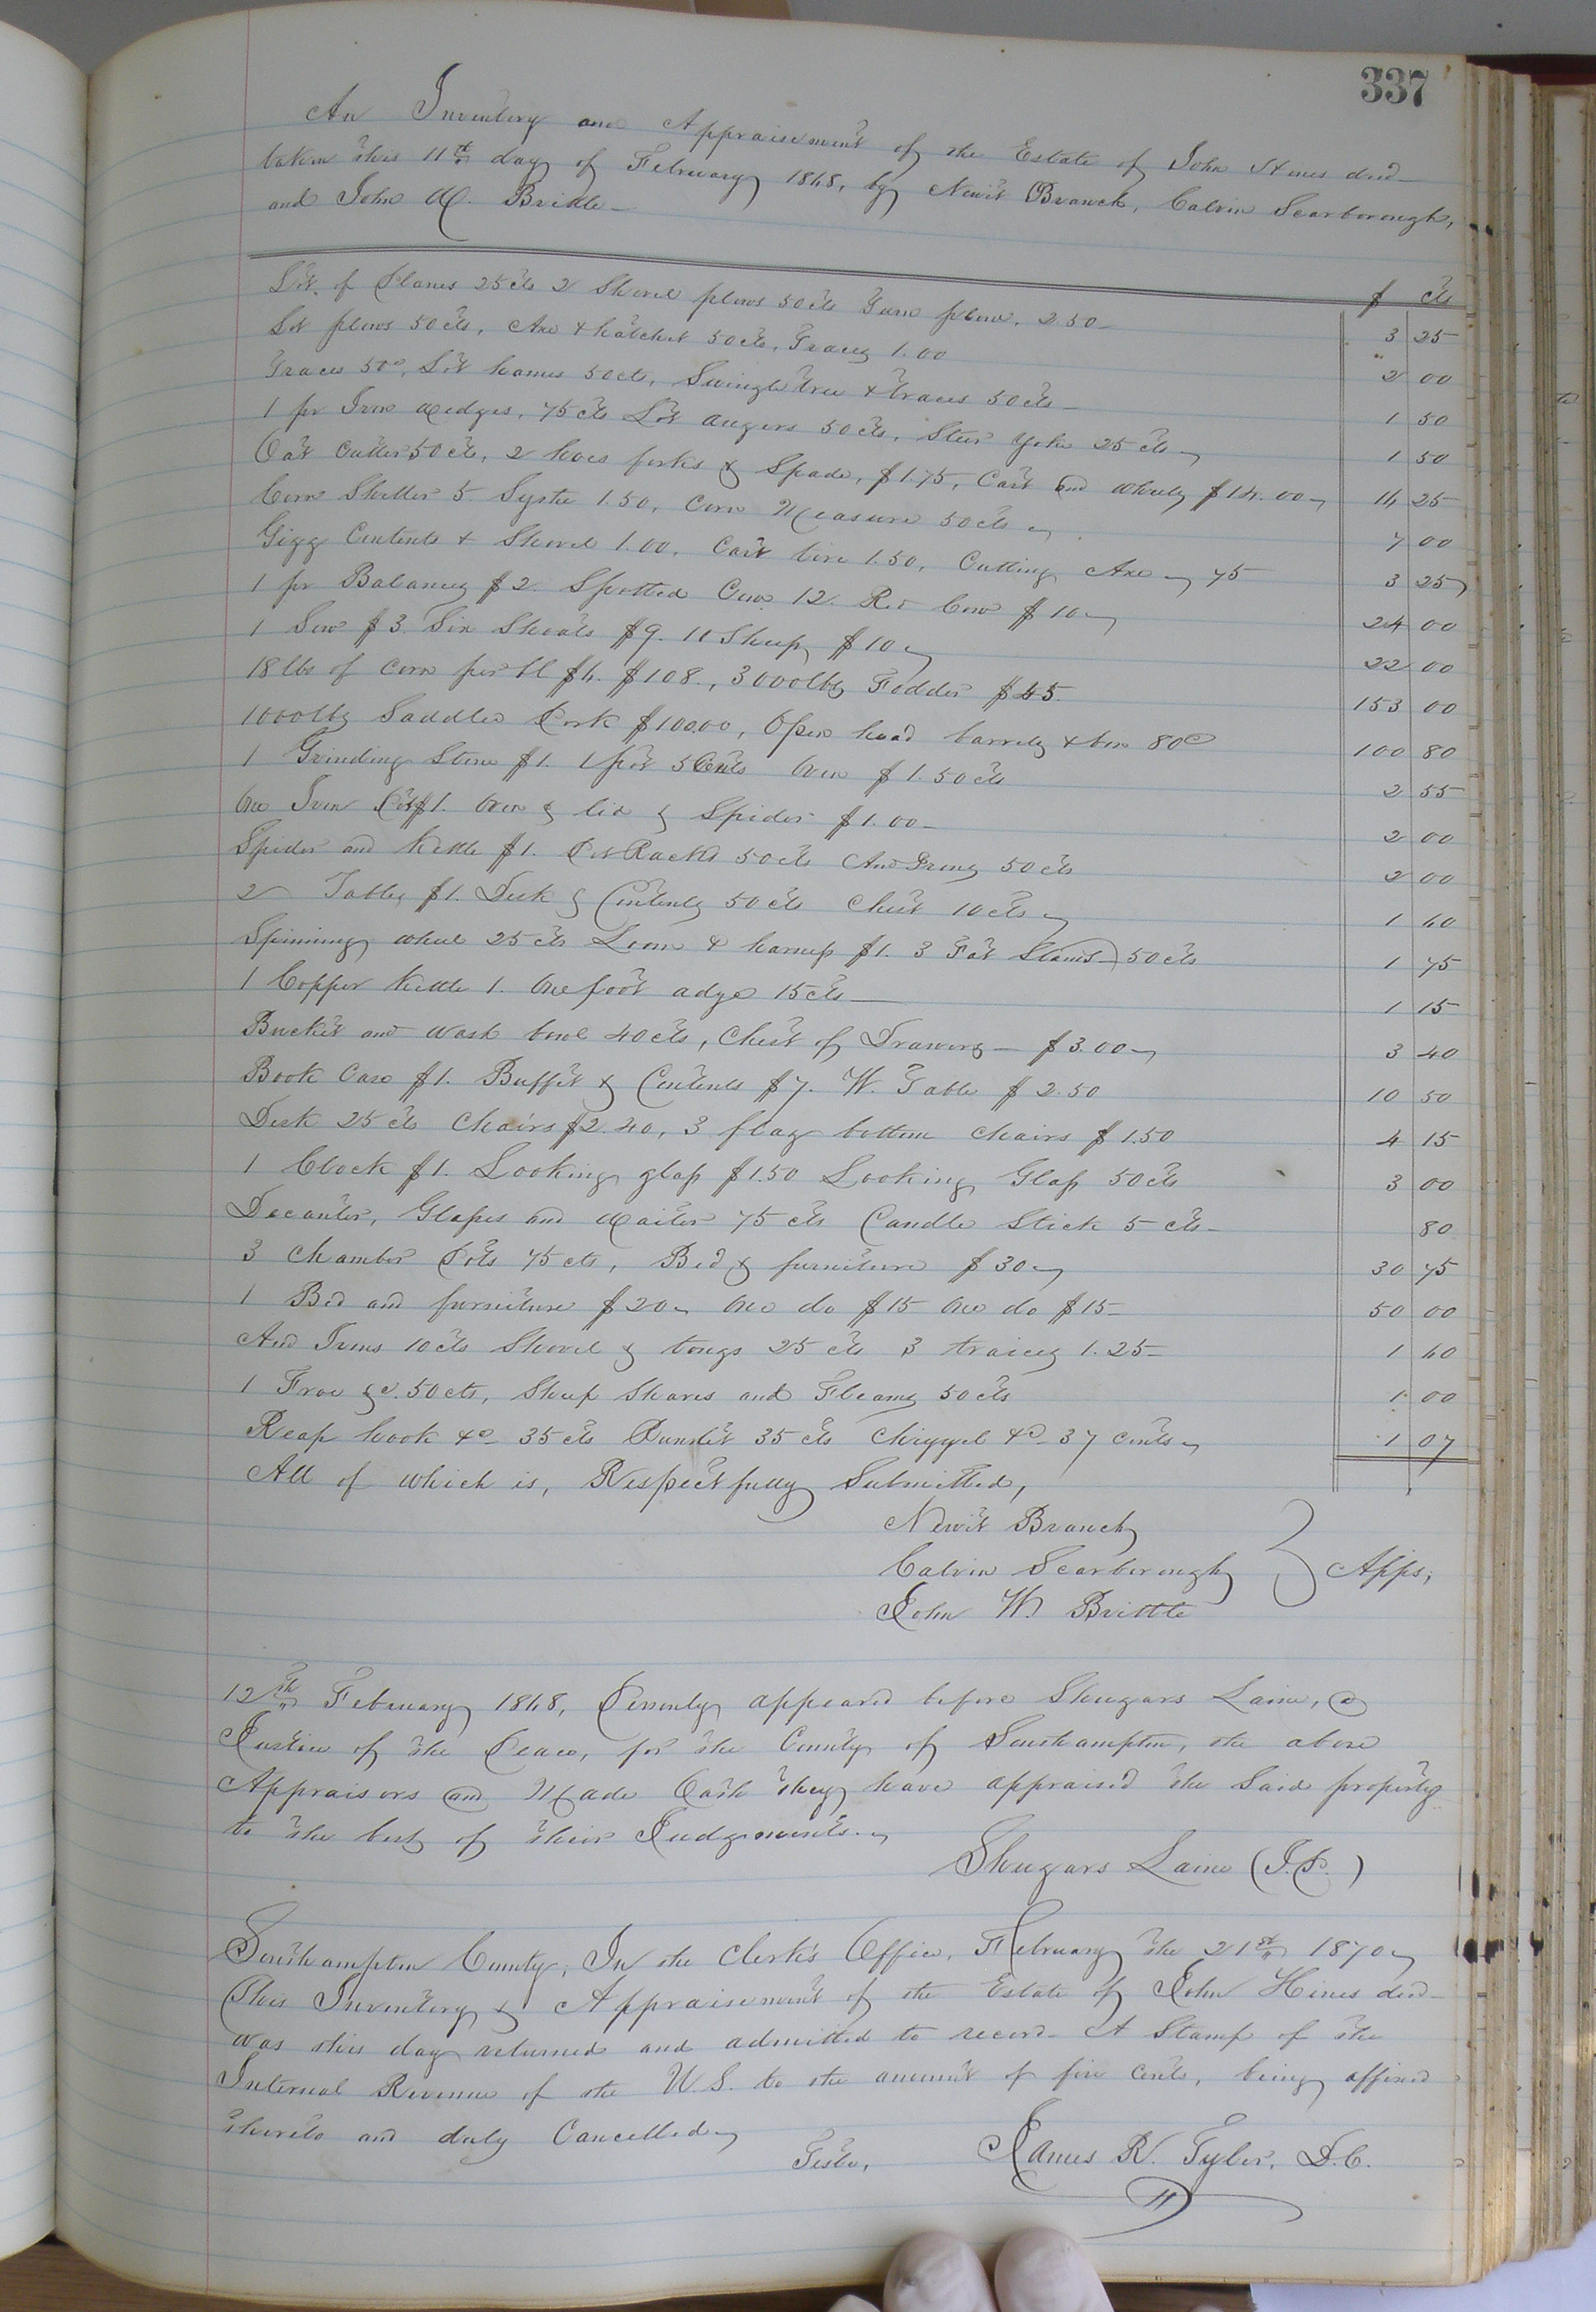 337
An Inventory and Appraisement of the Estate of John Hines decd
taken this 11th day of February 1868, by Newit Branch, Calvin Scarborough,
and John W. Brittle
$ cts
Lot of Planes 25 cts 2 Shovel plows 50 cts Turn plow, 2.50 3 25
Lot plows 50 cts, Axe & hatchet 50 cts, Traces 1.00 2 00
Traces 50c, Lot hames 50 cts, Swingle tree & traces 50 cts 1 50
1 pr Iron wedges, 75 cts Lot augers 50 cts, Steer yoke 25 cts 1 50
Oat Cutter 50 cts, 2 hoes forks & Spade, $1.75, Cart and wheels $12.00 14 25
Corn Sheller 5 Sythe 1.50, Corn Measure 50 cts 7 00
Gigg Contents & Shovel 1.00, Cart tire 1.50, Cutting Axe 75 3 25
1 pr Balances $2. Spotted Cow 12. Red Cow $10 24 00
1 Sow $3. Six Shoats $9. 10 Sheep $10 22 00
18 lbs of corn per bl $6. $108., 3000 lbs Fodder $45. 153 00
1000 lbs Saddled Pork $100.00, Open head barrels & box 80c 100 80
1 Grinding Stone $1. 1 pot 5 Cents Oven $1.50 cts 2 55
One Iron Pot $1. Oven & lid & Spider $1.00 2 00
Spider and kettle $1. Pot Racks 50 cts And Irons 50 cts 2 00
2 Tables $1. Desk & Contents 50 cts Chest 10 cts 1 60
Spinning wheel 25 cts Loom & harness $1. 3 Fat Stands 50 cts 1 75
1 Copper kettle 1. One foot adge 15 cts 1 15
Bucket and wash bowl 40 cts, Chest of Drawers $3.00 3 40
Book Case $1. Buffet & Contents $7. W. Table $2.50 10 50
Desk 25 cts Chairs $2.40, 3 flag bottom chairs $1.50 4 15
1 Clock $1. Looking glass $1.50 Looking Glass 50 cts 3 00
Decanter, Glasses and Waiter 75 cts Candle Stick 5 cts 80
3 Chamber Pots 75 cts, Bed & furniture $30 30 75
1 Bed and furniture $20 One do $15 One do $15 50 00
And Irons 10 cts Shovel & tongs 25 cts 3 traices 1.25 1 60
1 Froe &c. 50 cts, Sheep Shares and Fleams 50 cts 1 00
Reap hook &c 35 cts Runlet 35 cts Chizzel &c 37 cents 1 07
All of which is, Respectfully Submitted,
Newit Branch
Calvin Scarborough } Apps,
John W. Brittle
12th February 1868, Personly appeared before Shugars Laine, a
Justice of the Peace, for the County of Southampton, the above
Appraisors and Made Oath they have appraised the Said property
to the best of their Judgements.
Shugars Laine (J.P.)
Southampton County, In the Clerk's Office, February the 21st 1870
This Inventory & Appraisement of the Estate of John Hines decd
was this day returned and admitted to record. A Stamp of the
Internal Revenue of the U.S. to the amount of five cents, being affixed
thereto and duly Cancelled
Teste, James R. Tyler, D.C.